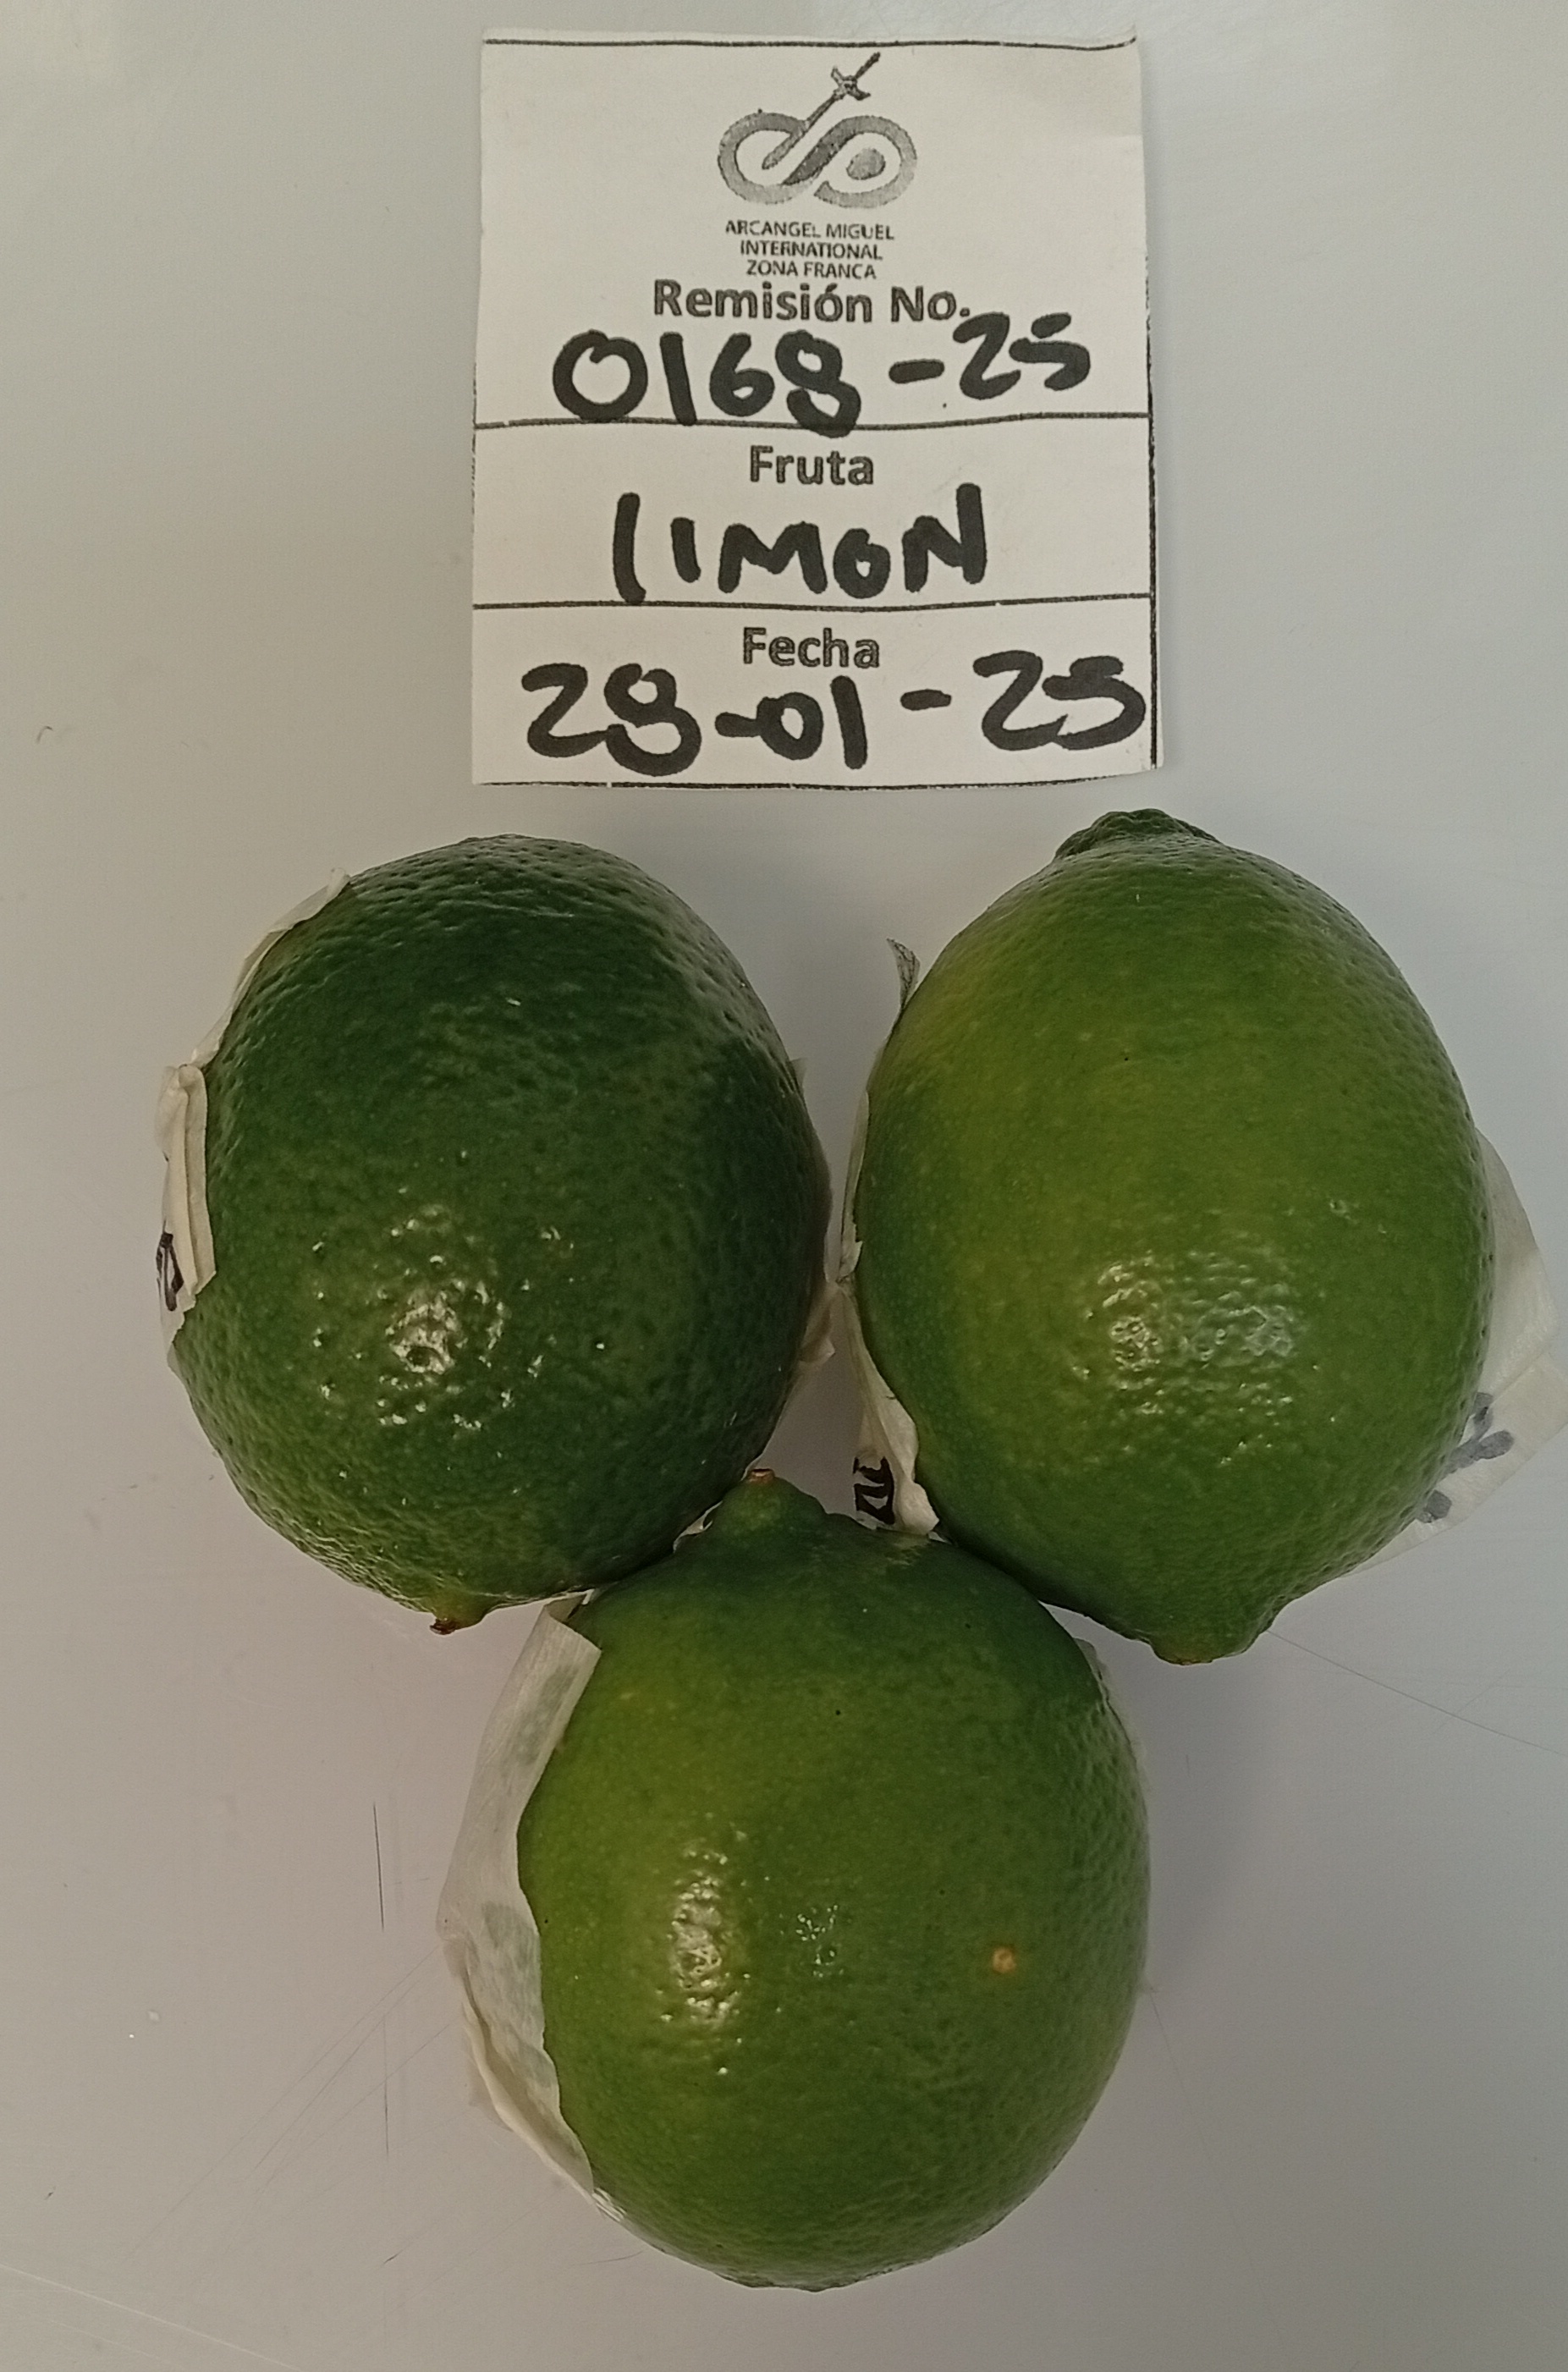 ARCANGEL MIGUEL
INTERNATIONAL
ZONA FRANCA
Remisión No.
0168-25
Fruta
LIMON
Fecha
28-01-25